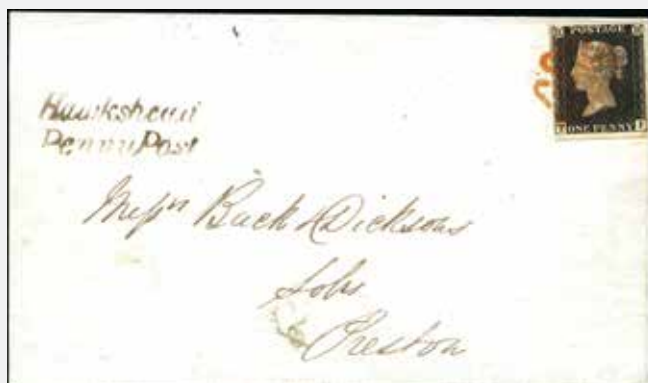 POSTAGE
ONE PENNY
Hawkshead
Penny Post
Messrs Buck & Dicksons
Solrs
Preston